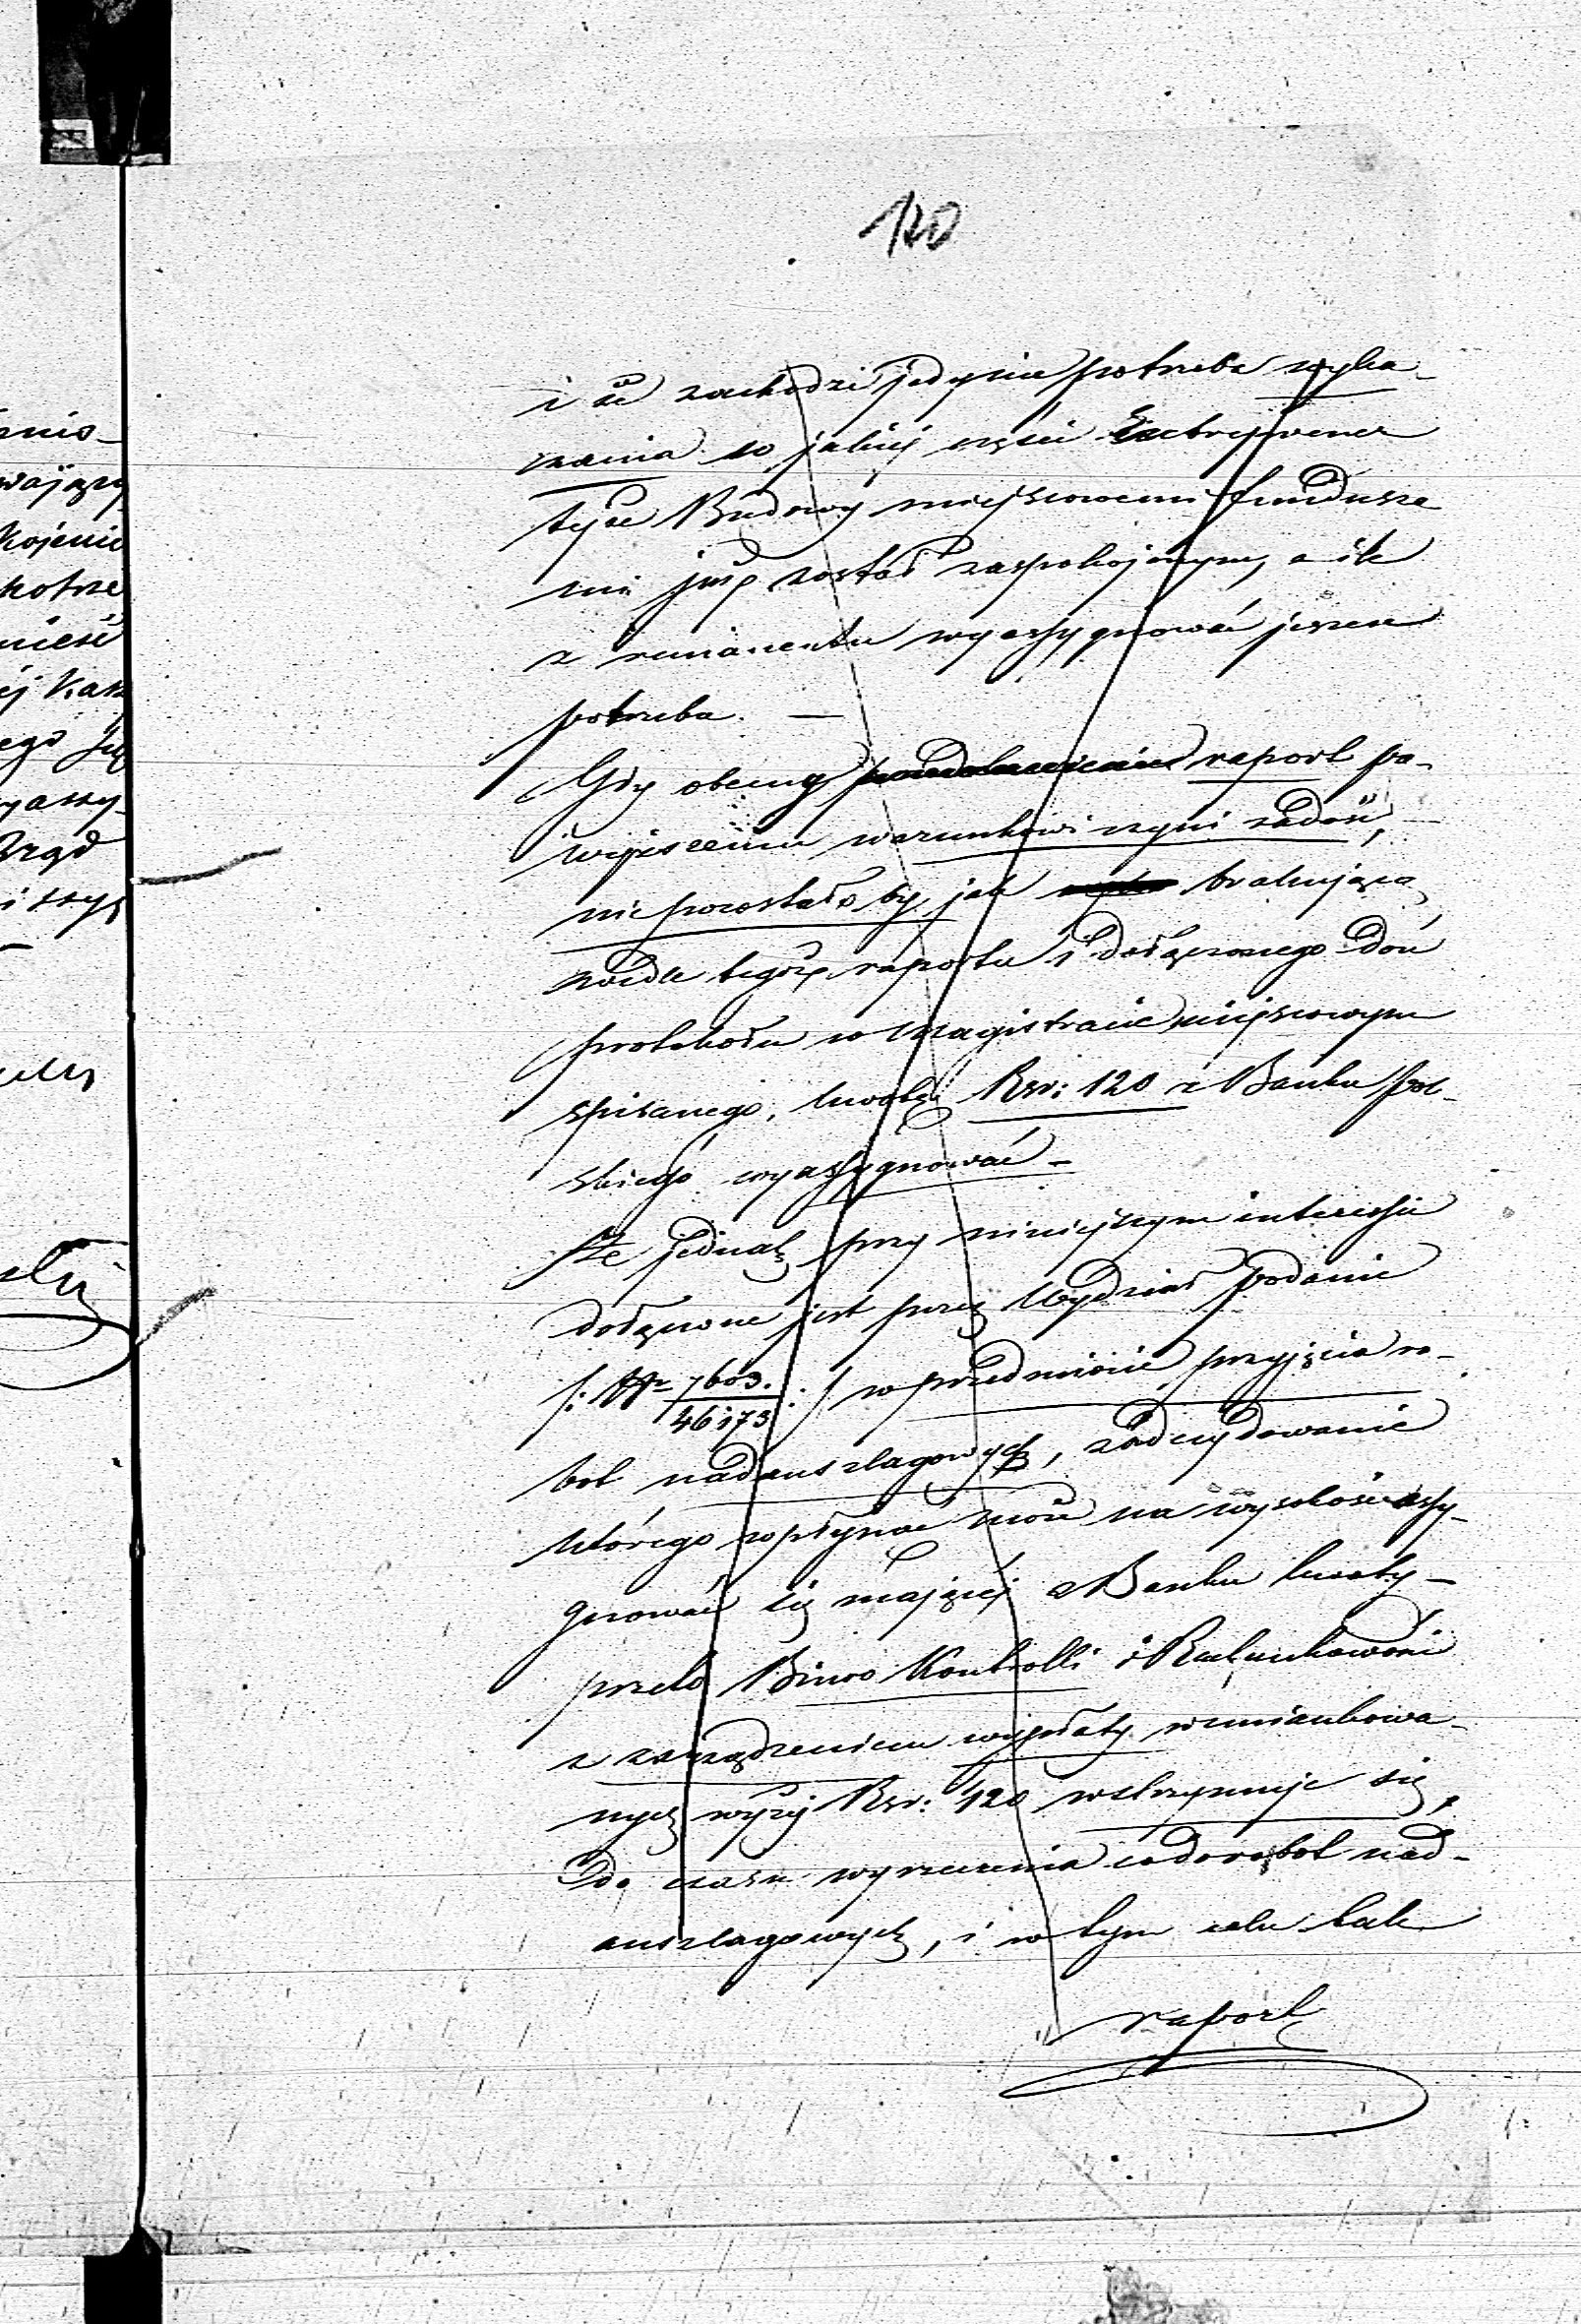 120
i że zachodzi jedynie potrzeba wyka-
zania w jakiej części Entreprener
tejże Budowy miejscowemi fundusza
mi już został zaspokojonym, a ile
z remanentu wyassygnować jeszcze
potrzeba. —
Gdy obecny raport po-
wyższemu warunkowi czyni zadość,
nie pozostało by jak brakującą
wedle tegoż raportu i dołączonego doń
protokołu w Magistracie miejscowym
spisanego, kwotę Rsr: 120 z Banku Pol-
skiego wyassygnować –
Że jednak przy niniejszym interessie
dołączone jest przez Wydział podanie
/: Nr 7603./46173 :/ w przedmiocie przyjęcia ro-
bot nadanszlagowych, zadecydowanie
którego wpłynąć może na wysokość assy-
gnować się mającej z Banku kwoty –
przeto Biuro Kontrolli i Rachunkowości
z zarządzeniem wypłaty wzmiankowa-
nych wyżej Rsr: 120 wstrzymuje się,
do czasu wyrzeczenia co do robot nad-
anszlagowych, i w tym celu tak
" raport
mieść
ej Kass
ego